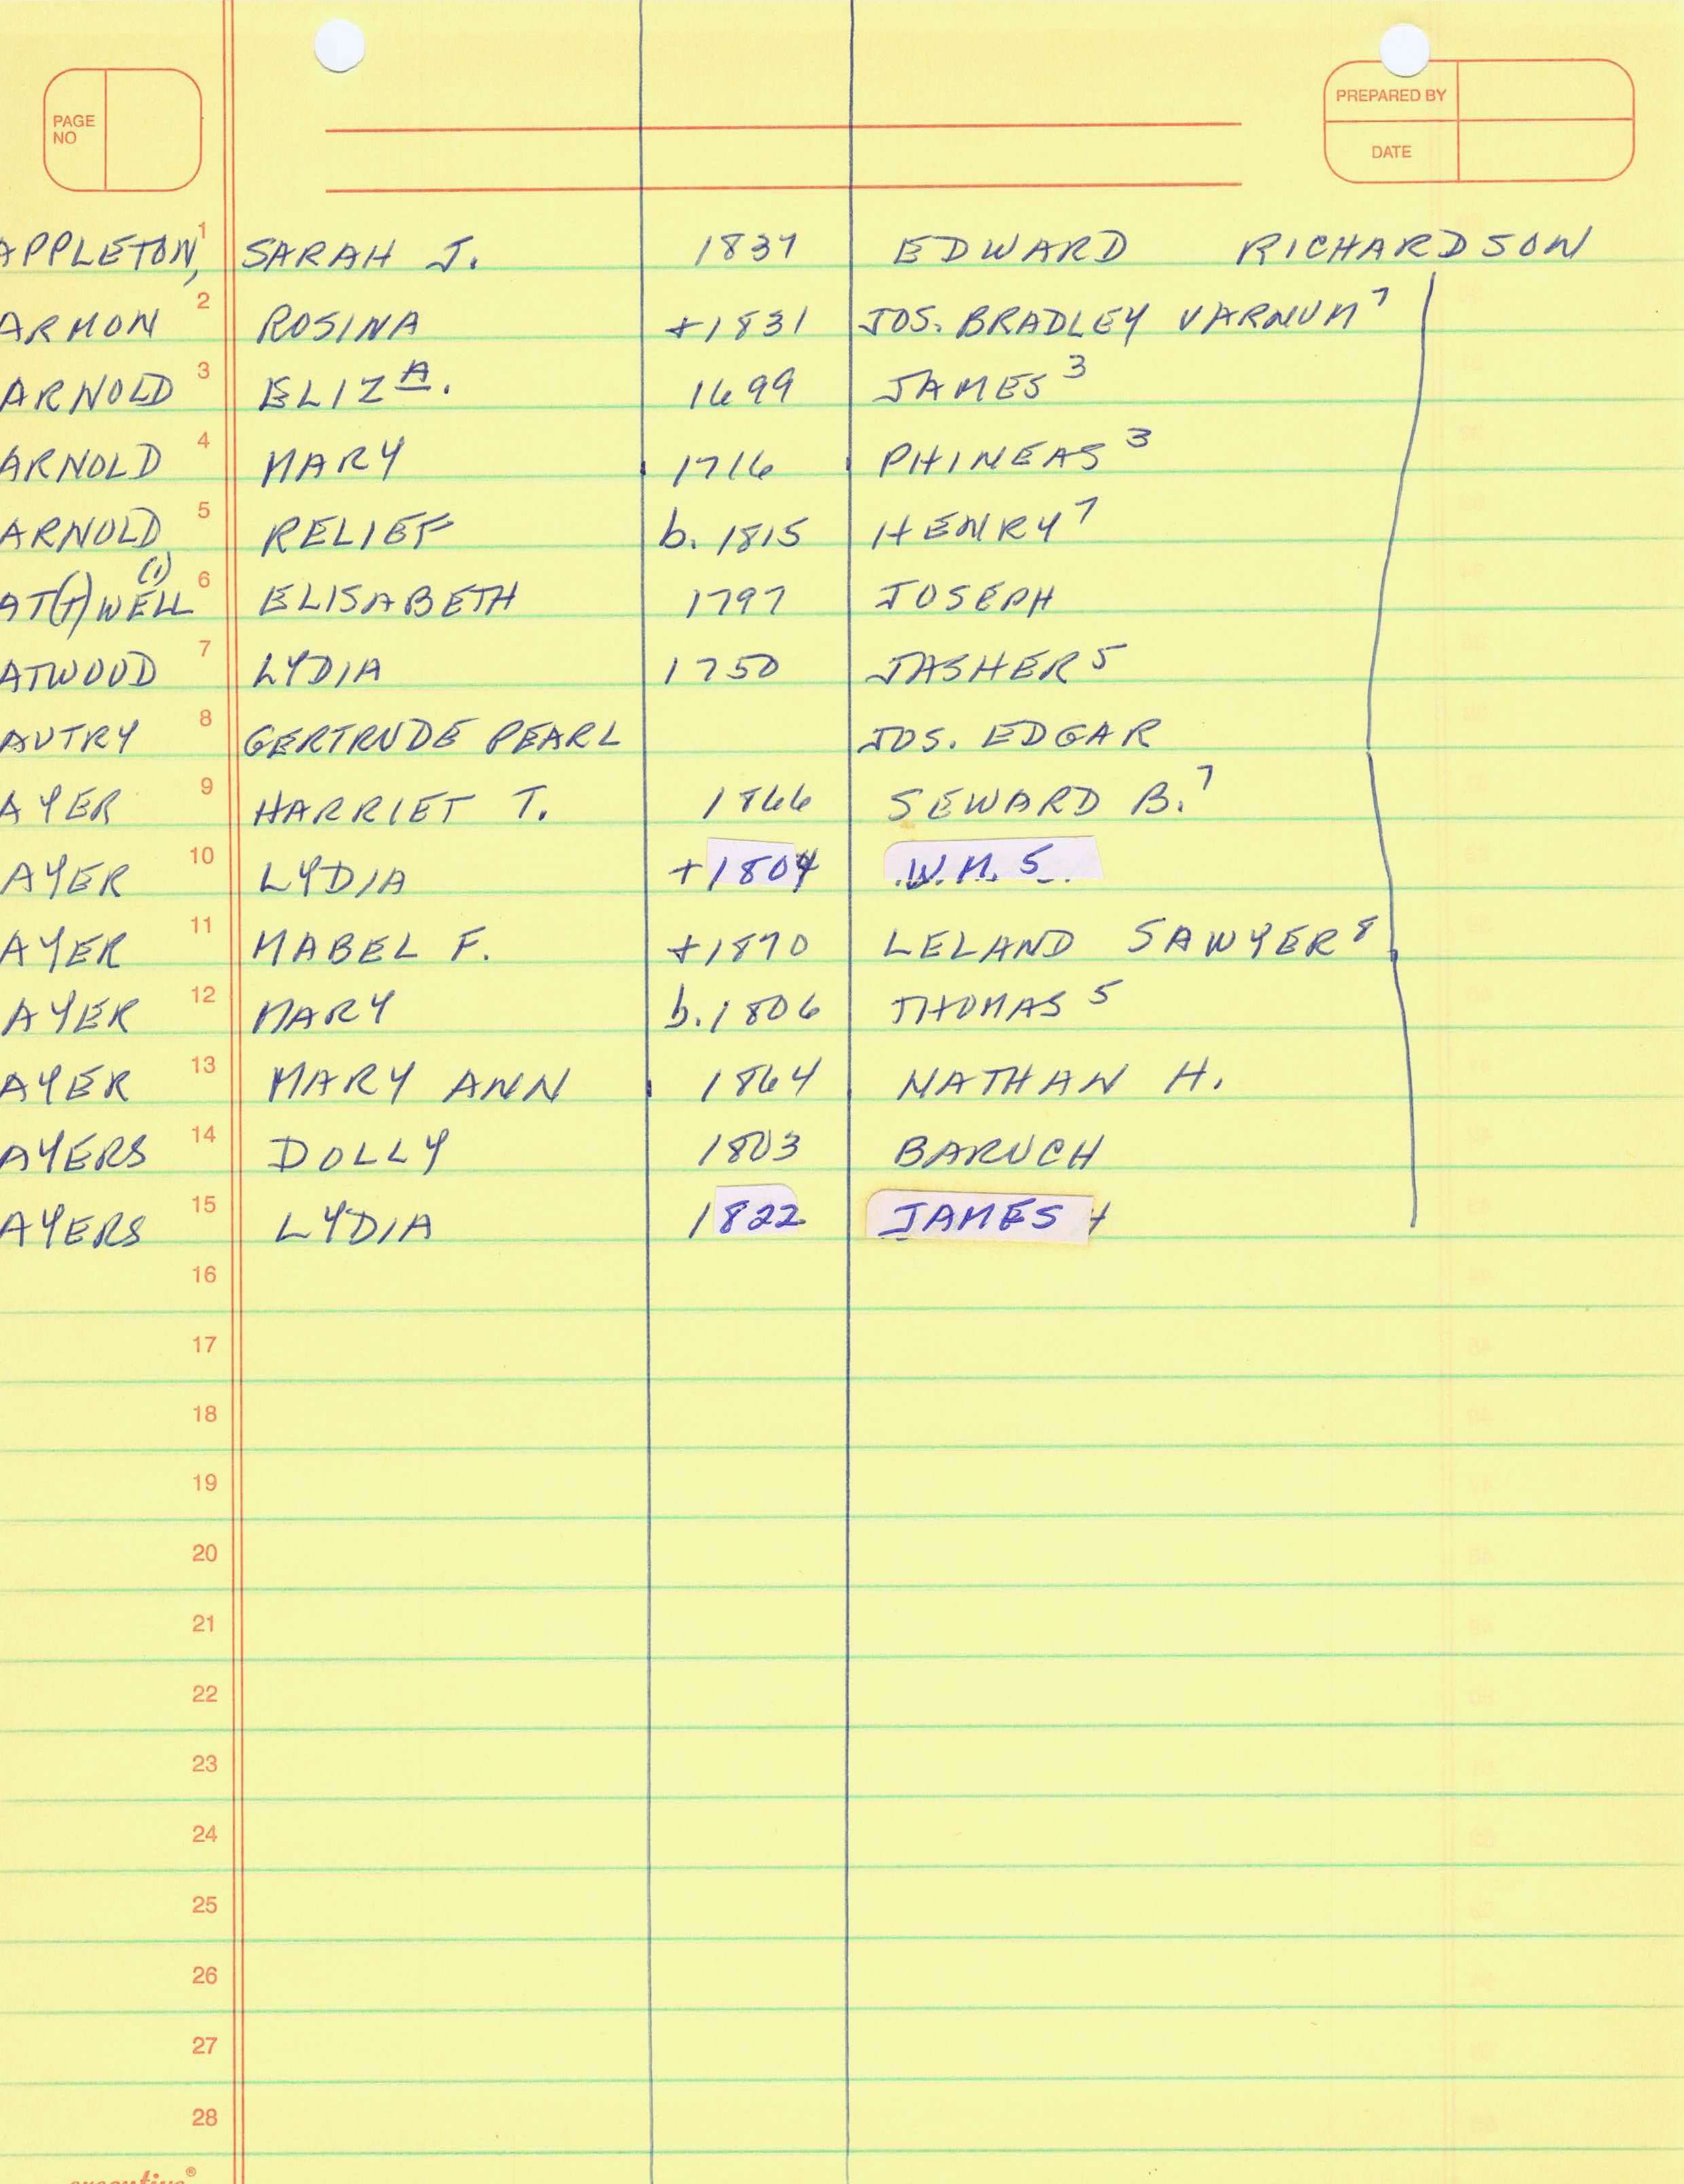 PAGE NO
PREPARED BY
DATE
APPLETON, 1 SARAH J. 1837 EDWARD RICHARDSON
ARMON 2 ROSINA +1831 JOS. BRADLEY VARNUM 7
ARNOLD 3 ELIZA. 1699 JAMES 3
ARNOLD 4 MARY 1716 PHINEAS 3
ARNOLD 5 RELIEF b. 1815 HENRY 7
AT(T)WELL (1) 6 ELISABETH 1797 JOSEPH
ATWOOD 7 LYDIA 1750 JASHER 5
AUTRY 8 GERTRUDE PEARL JOS. EDGAR
AYER 9 HARRIET T. 1866 SEWARD B. 7
AYER 10 LYDIA +1804 W.M. 5
AYER 11 MABEL F. +1870 LELAND SAWYER 8
AYER 12 MARY b. 1806 THOMAS 5
AYER 13 MARY ANN 1864 NATHAN H.
AYERS 14 DOLLY 1803 BARUCH
AYERS 15 LYDIA 1822 JAMES
16
17
18
19
20
21
22
23
24
25
26
27
28
executive®